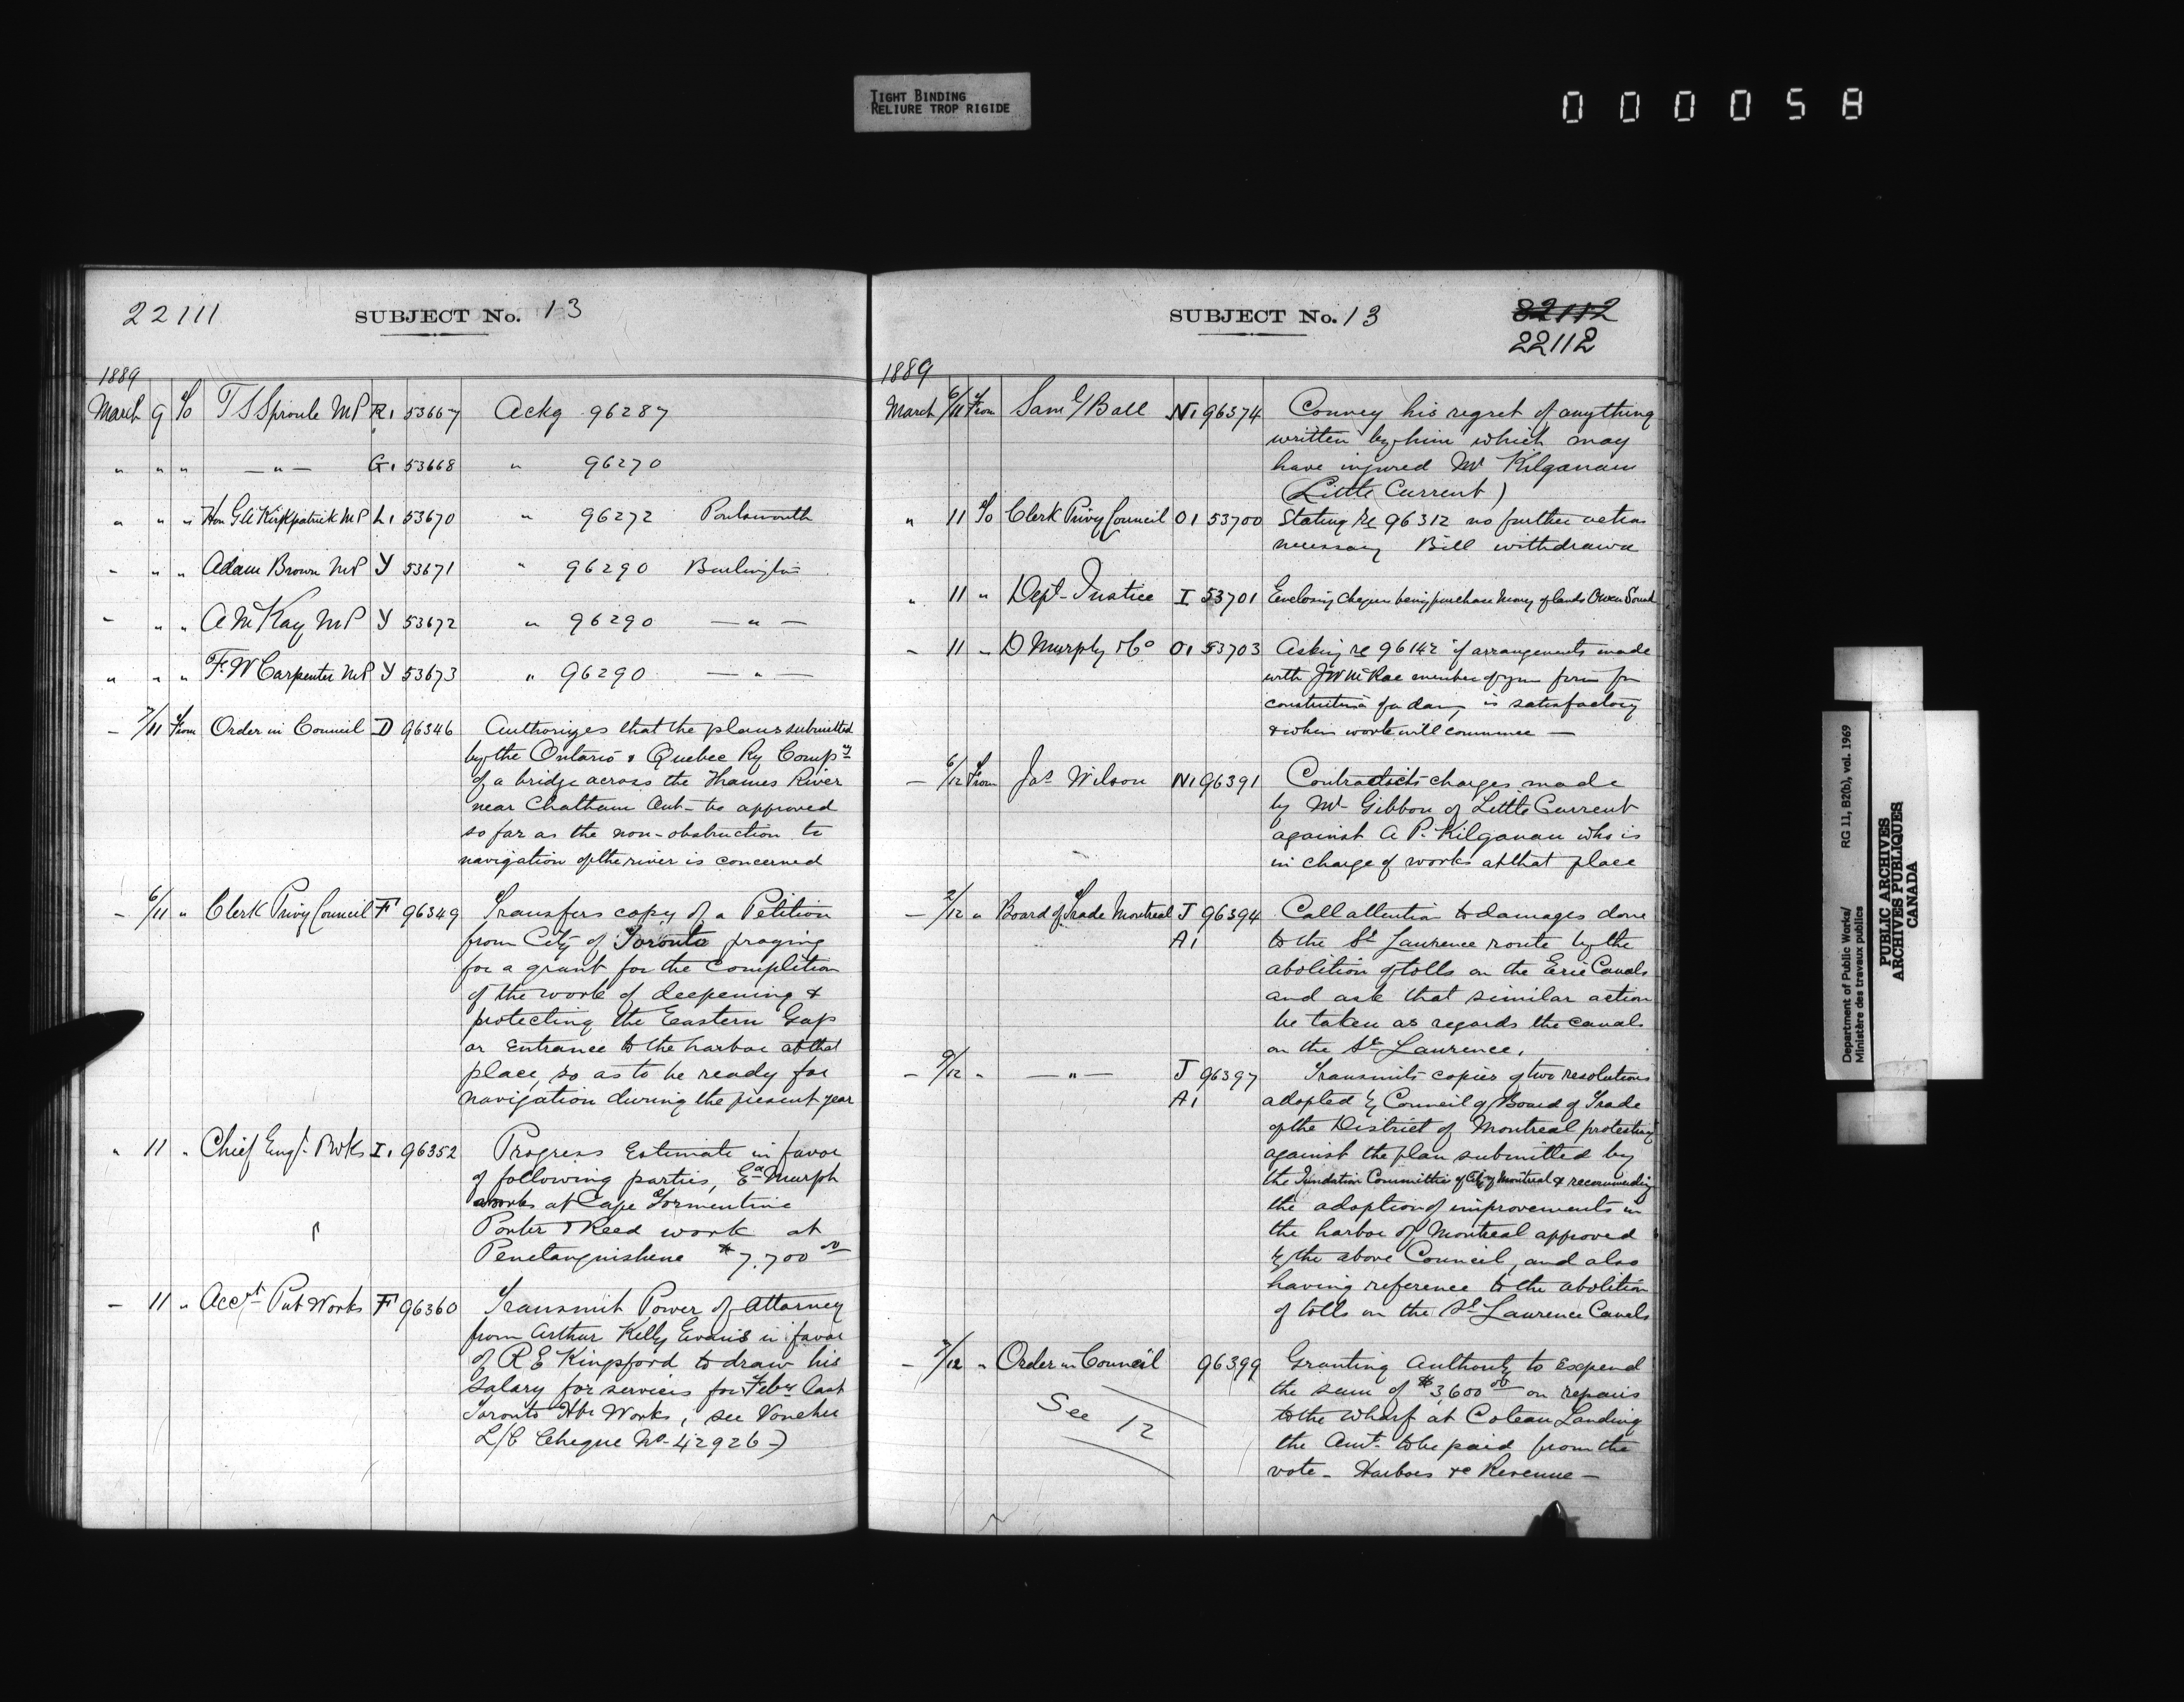 TIGHT BINDING
RELIURE TROP RIGIDE
000058
22111
SUBJECT No. 13
1889
March 9 To T S Sproule MP R1 53667 Ackg 96287
" " " — " — G1 53668 " 96270
" " " Hon G A Kirkpatrick MP L1 53670 " 96272 Portsmouth
- " " Adam Brown MP Y 53671 " 96290 Burlington
- " " A McKay MP Y 53672 " 96290 — " —
" " " F. W Carpenter MP Y 53673 " 96290 — " —
- 7/11 From Order in Council D 96346 Authorizes that the plans submitted
by the Ontario & Quebec Ry Compy
of a bridge across the Thames River
near Chatham Ont - be approved
so far as the non-obstruction to
navigation of the river is concerned
- 6/11 " Clerk Privy Council F 96349 Transfers copy of a Petition
from City of Toronto praying
for a grant for the completion
of the work of deepening &
protecting the Eastern Gap
or Entrance to the harbor at that
place, so as to be ready for
navigation during the present year
" 11 " Chief Engr. P Wks I1 96352 Progress Estimate in favor
of following parties, Murph
works at Cape Tormentine
Porter & Reed work at
Penetanguishene $7,700 00
- 11 " Acct Pub Works F 96360 Transmit Power of Attorney
from Arthur Kelly Evans in favor
of R E Kingsford to draw his
salary for services for Feby last
Toronto Hbr Works, see Voucher
L/C Cheque No. 42926-)
SUBJECT No. 13
82112
22112
1889
March 6/11 From Saml Ball N1 96374 Convey his regret of anything
written by him which may
have injured Mr Kilganan
(Little Current)
" 11 To Clerk Privy Council O1 53700 Stating re 96312 no further action
necessary Bill withdrawn
" 11 " Dept Justice I 53701 Enclosing cheque being purchase money of lands Owen Sound
- 11 " D Murphy & Co O1 53703 Asking re 96142 if arrangements made
with J W McRae member of your firm for
construction of a dam, is satisfactory
& when work will commence —
- 6/12 From Jas Wilson N1 96391 Contradicts charges made
by Mr Gibbon of Little Current
against A P. Kilganan who is
in charge of works at that place
- 2/12 " Board of Trade Montreal J 96394 Call attention to damages done
A1 to the St Lawrence route by the
abolition of tolls on the Erie Canals
and ask that similar action
be taken as regards the canals
on the St Lawrence.
- 9/12 " — " — J 96397 Transmits copies of two resolutions
A1 adopted by Council of Board of Trade
of the District of Montreal protesting
against the plan submitted by
the Inundation Committee of City of Montreal & recommending
the adoption of improvements in
the harbor of Montreal approved
by the above Council, and also
having reference to the abolition
of tolls on the St Lawrence Canals
- 7/12 " Order in Council 96399 Granting Authority to expend
the sum of $3,600 00 on repairs
See 12
to the wharf at Coteau Landing
the Amt. to be paid from the
vote - Harbors &c Revenue —
Department of Public Works/ RG 11, B2(b), vol. 1969
Ministère des travaux publics
PUBLIC ARCHIVES
ARCHIVES PUBLIQUES
CANADA